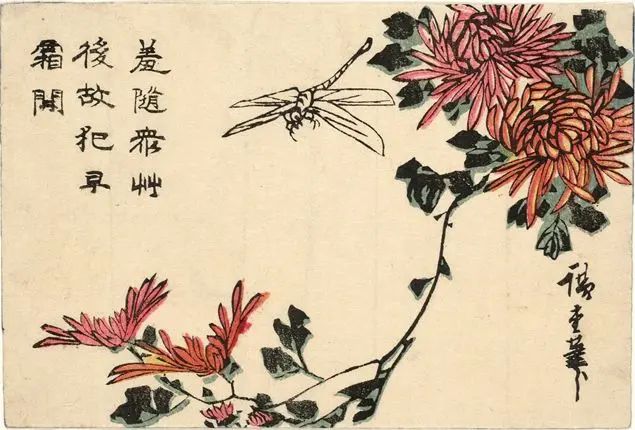 羞随衆艸
後故犯早
霜開
廣重筆